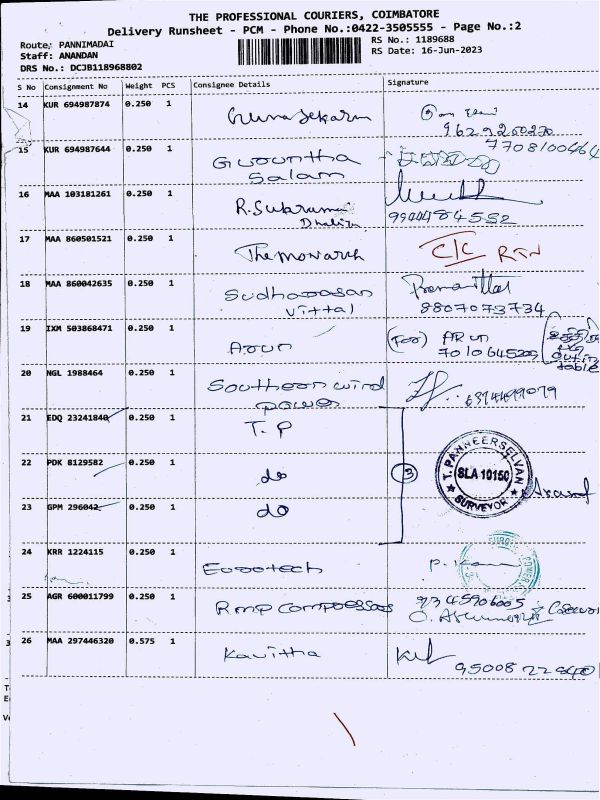 THE PROFESSIONAL COURIERS, COIMBATORE
Delivery Runsheet - PCM - Phone No.:0422-3505555 - Page No.:2
Route: PANNIMADAI
RS No.: 1189688
Staff: ANANDAN
RS Date: 16-Jun-2023
DRS No.: DCJB118968802
S No Consignment No Weight PCS Consignee Details Signature
14 KUR 694987874 0.250 1 Gunasekaran
9629200270
15 KUR 694987644 0.250 1 Gurountha 7708100464
Salam
16 MAA 103181261 0.250 1 R. Subramani
9944484552
17 MAA 860501521 0.250 1 The monarch C/C RTN
18 MAA 860042635 0.250 1 Sudharasan
vittal 8807073734
19 IXM 503868471 0.250 1 Arun (For) ARUN
7010645209
20 NGL 1988464 0.250 1 Southern wind
power 6374499079
21 EDQ 23241840 0.250 1 T.P
22 PDK 8129582 0.250 1 do 3
T. PANNEERSELVAN
SLA 10150
SURVEYOR
23 GPM 296042 0.250 1 do
24 KRR 1224115 0.250 1 Eurotech
25 AGR 600011799 0.250 1 Rmp compressors 9345906005
26 MAA 297446320 0.575 1 Kavitha